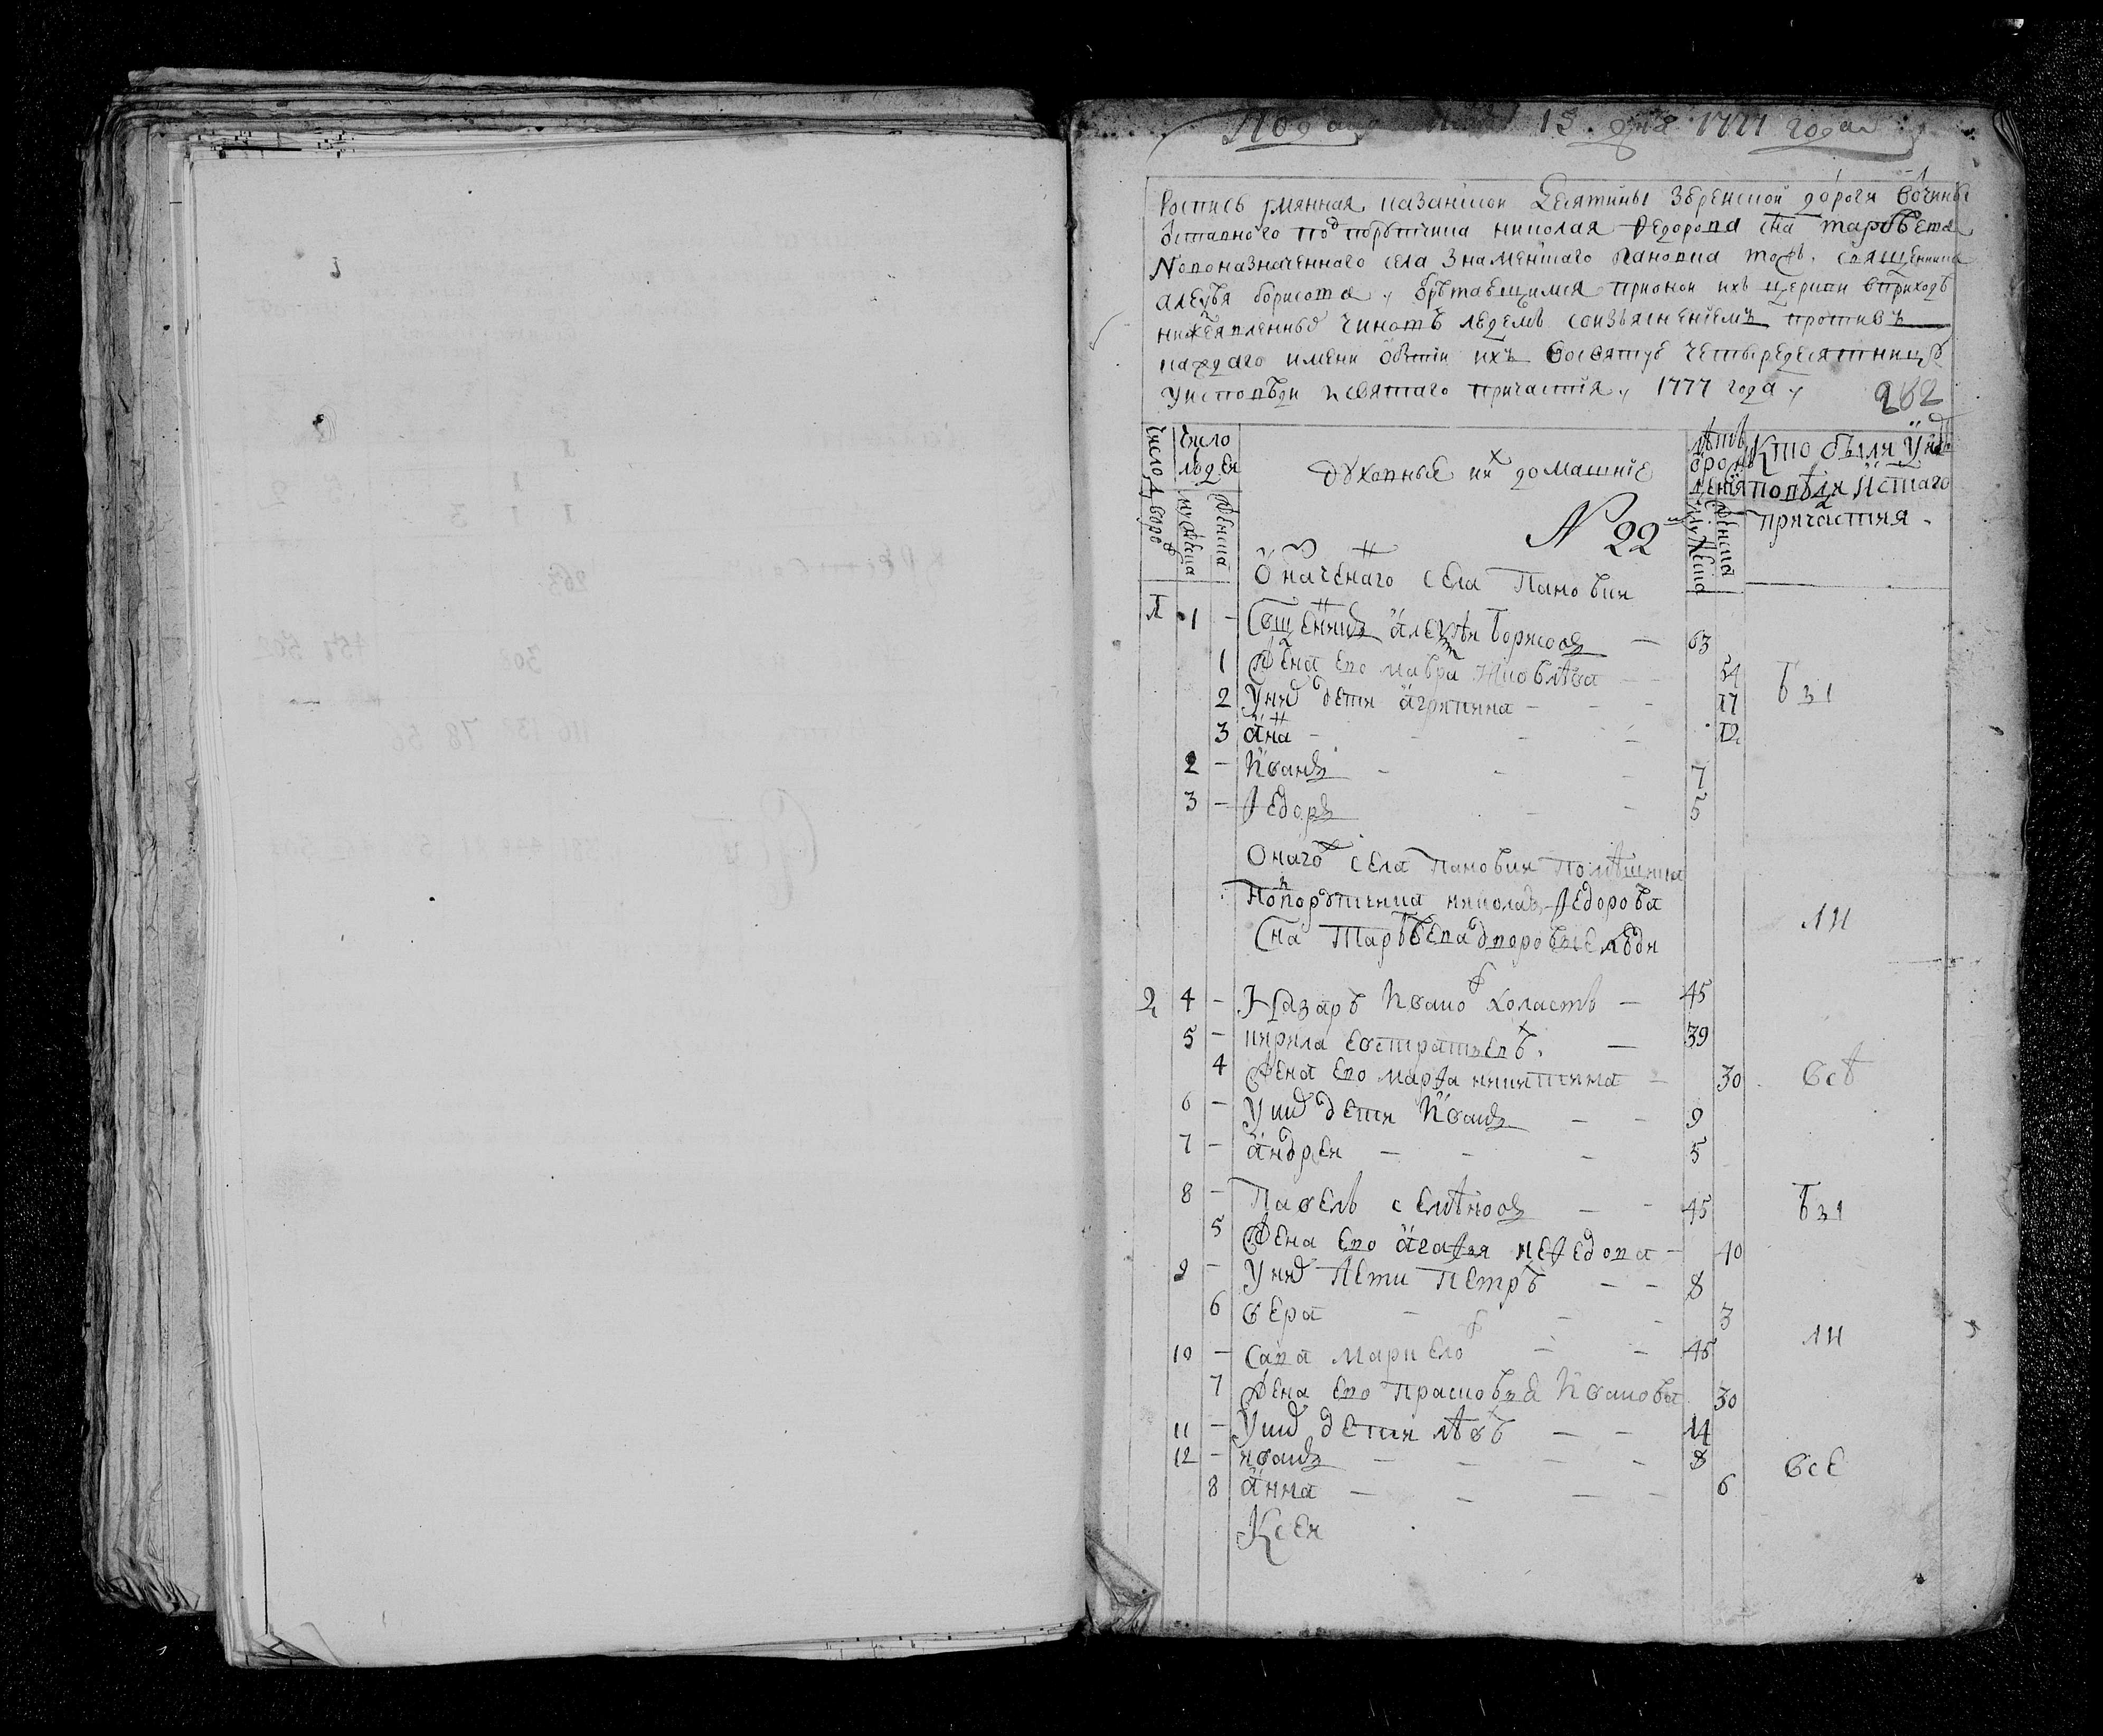 Подано 15 дня 1777 года
Роспись имянная казанской десятины Зюрейской дороги вочины
отставного подпорутчика николая Федорова сна
новоназначеннаго села Знаменскаго Пановка тожъ, священника
алеѯѣя борисова, обрѣтающимся прионой ихъ церкви вприходѣ
нижеявленныхъ чиновъ людемъ соизъясненіемъ противъ
каждаго имени бытіи ихъ восвятую четыредесятницу
уисповѣди исвятаго причастія, 1777 года,
262
Число дворовъ
число людей
мужеска
женска
Духовные ихъ домашніе
лѣтъ отрожденія
мужеска
женска
Кто были у исповѣди и стаго причастия
N 22
Означенаго села Пановки
1 1 – Сщенникъ алеѯѣй Борисовъ – 63
1 Жена ево мавра – – 54 бы
2 У нихъ дети агрипина – – – 17
3 анна – – – – 12
2 – Иванъ – – – 7
3 – Федоръ – – 5
Онаго села Пановки Помѣщика
подпорутчика николая Федорова
сна дворовые люди
ли
2 4 – Назаръ Ивановъ холостъ – 45
5 – кирила евстратьевъ – 39
4 Жена ево марфа никитина – 30 всѣ
6 – У ихъ дети Иванъ – – 9
7 – андрей – – – 5
8 – Павелъ – – 45 бы
5 Жена ево агафья – 40
9 – У нихъ дети Петръ – – 8
6 вера – – – 3
ли
10 – Сава – – 45
7 Жена ево прасковья Иванова 30
11 – У ихъ дети лѣвъ – – 14
12 – иванъ – – – – 8 все
8 анна – – – – 6
Ксен